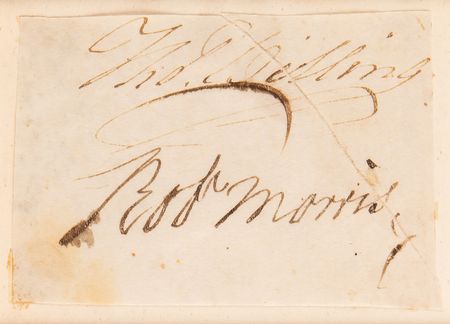 Tho. Willing
Robt Morris